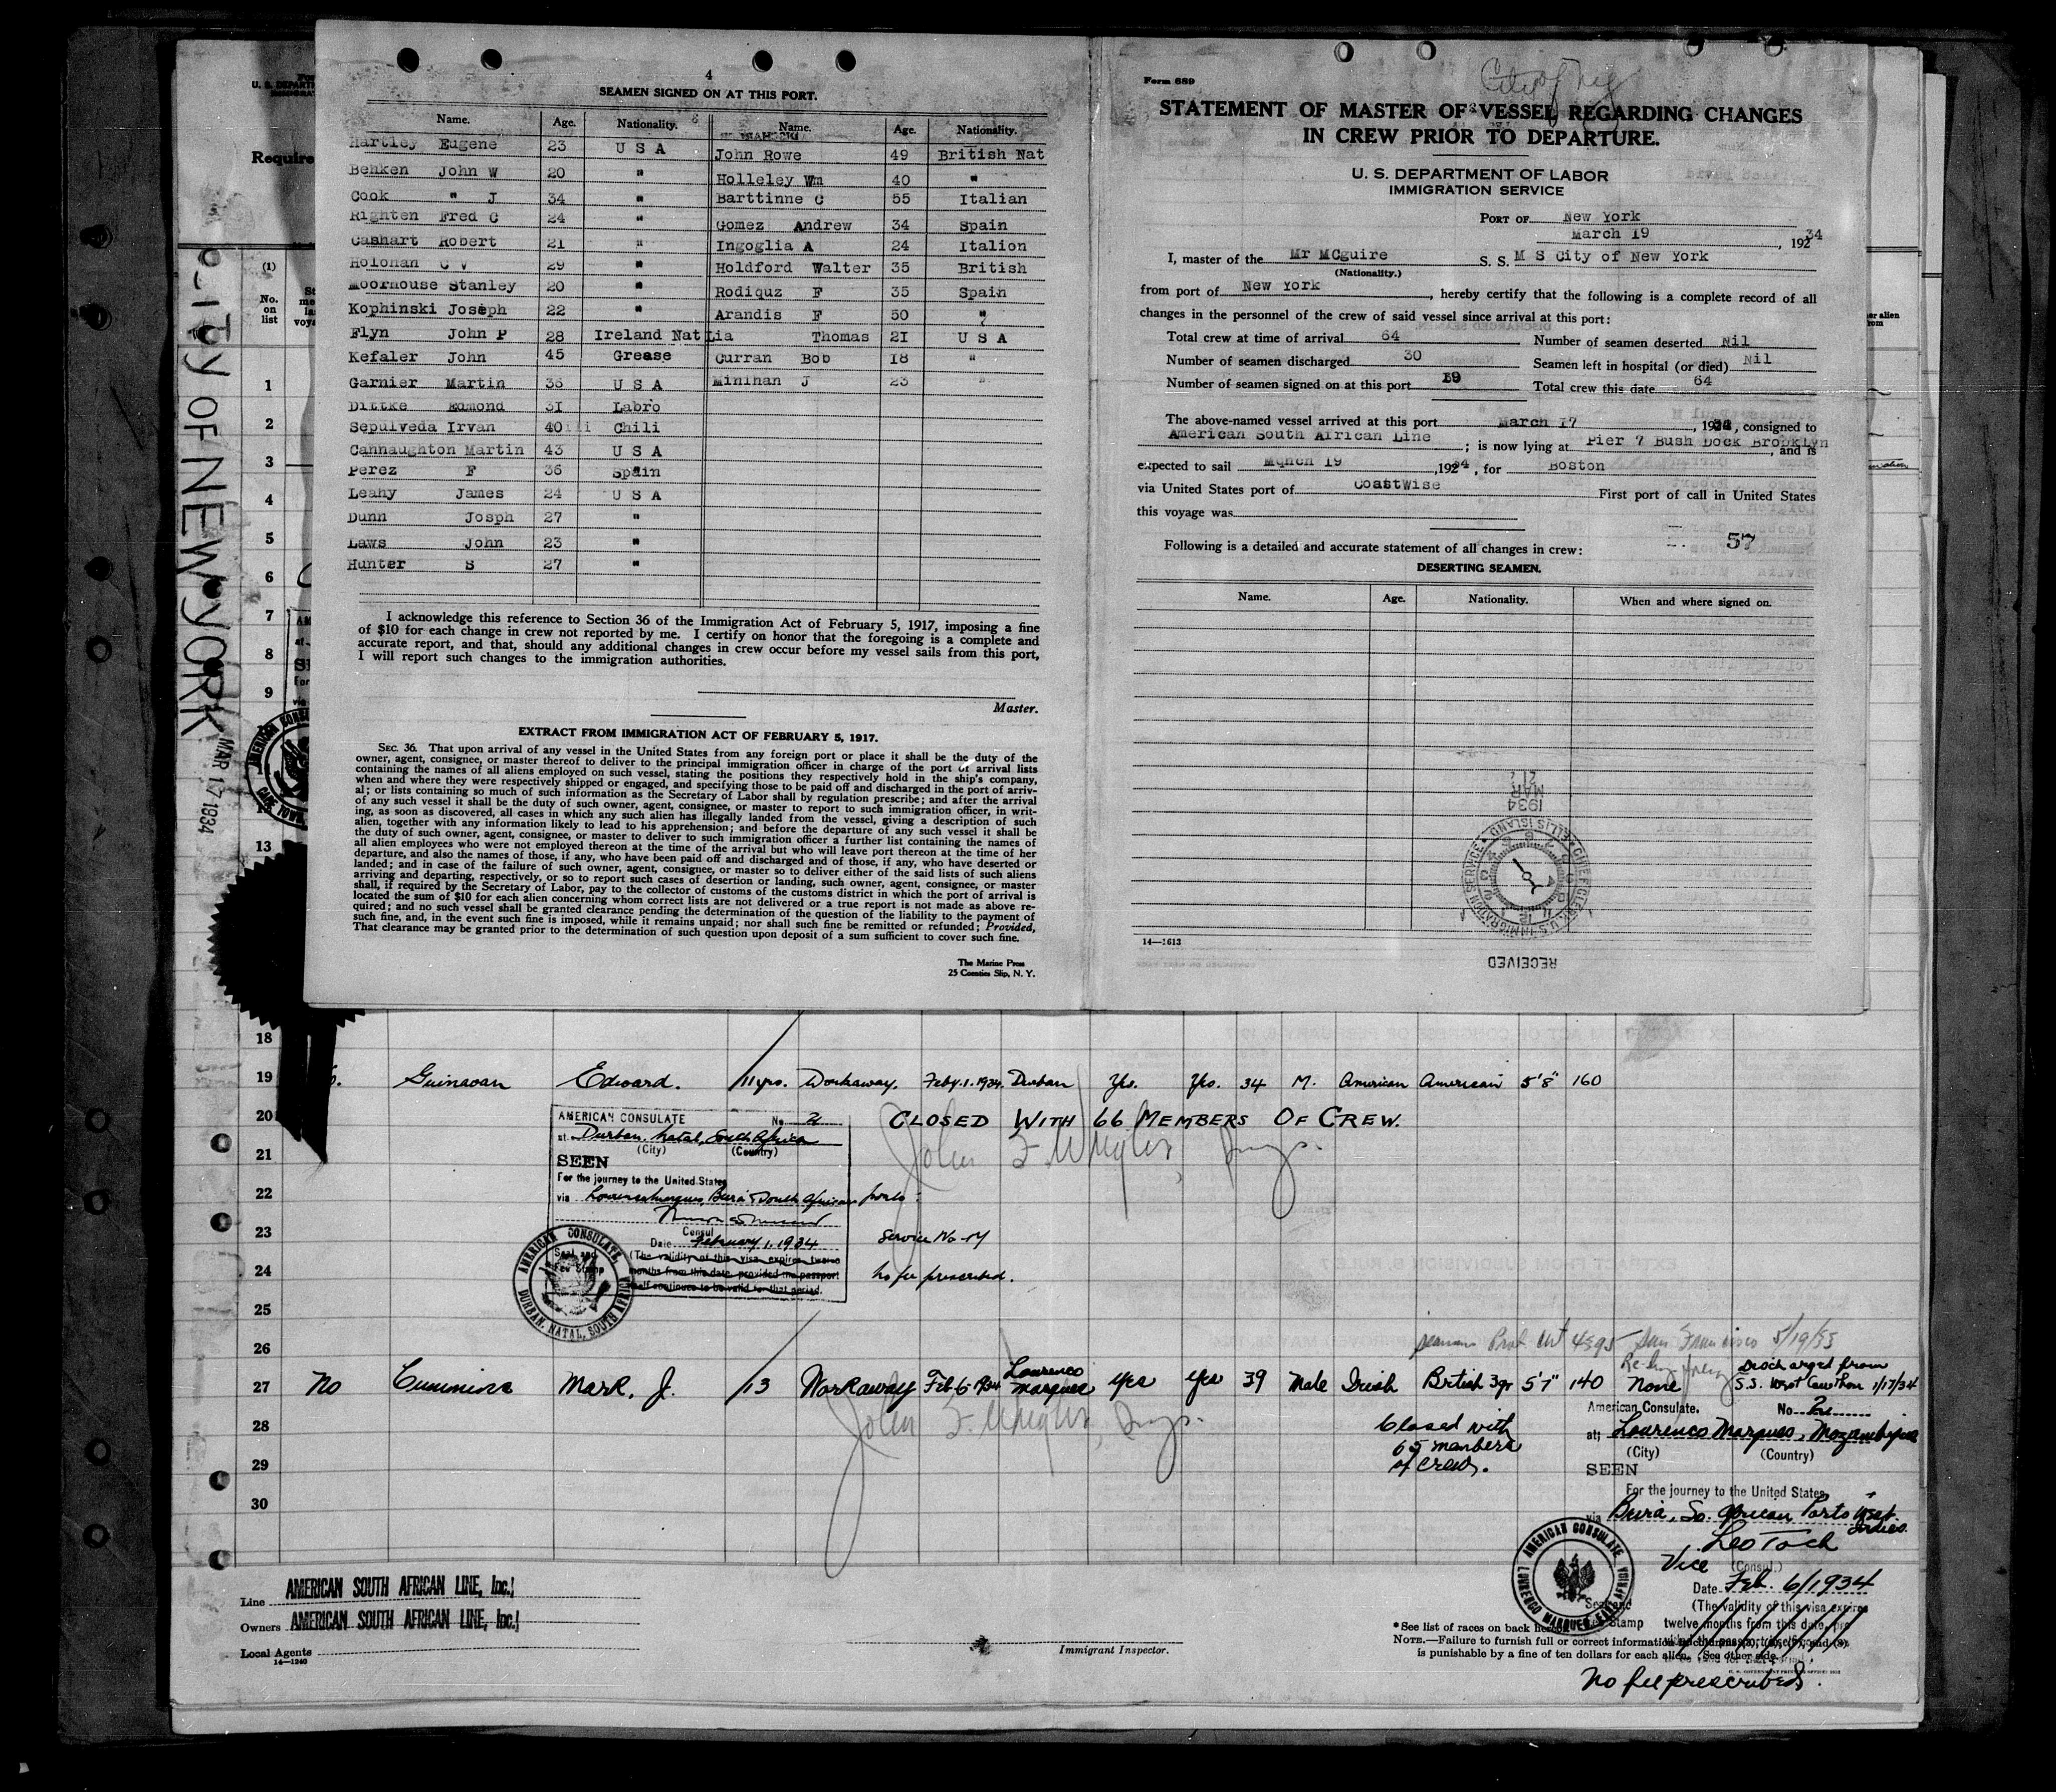 4
SEAMEN SIGNED ON AT THIS PORT.
Name. Age. Nationality. Name. Age. Nationality.
Hartley Eugene 23 U S A
Benken John W 20 "
Cook " J 34 "
Righten Fred C 24 "
Cashart Robert 21 "
Holohan C V 29 "
Moorhouse Stanley 20 "
Kophinski Joseph 22 "
Flyn John P 28 Ireland Nat
Kefaler John 45 Grease
Garnier Martin 36 U S A
Dittke Edmond 31 Labro
Sepulveda Irvan 40 Chili
Cannaughton Martin 43 U S A
Perez F 36 Spain
Leahy James 24 U S A
Dunn Josph 27 "
Laws John 23 "
Hunter S 27 "
John Rowe 49 British Nat
Holleley Wm 40 "
Barttinne C 55 Italian
Gomez Andrew 34 Spain
Ingoglia A 24 Italion
Holdford Walter 35 British
Rodiquz F 35 Spain
Arandis F 50 "
Lia Thomas 21 U S A
Curran Bob 18 "
Minihan J 23 "
I acknowledge this reference to Section 36 of the Immigration Act of February 5, 1917, imposing a fine
of $10 for each change in crew not reported by me. I certify on honor that the foregoing is a complete and
accurate report, and that, should any additional changes in crew occur before my vessel sails from this port,
I will report such changes to the immigration authorities.
Master.
EXTRACT FROM IMMIGRATION ACT OF FEBRUARY 5, 1917.
SEC. 36. That upon arrival of any vessel in the United States from any foreign port or place it shall be the duty of the
owner, agent, consignee, or master thereof to deliver to the principal immigration officer in charge of the port of arrival lists
containing the names of all aliens employed on such vessel, stating the positions they respectively hold in the ship's company,
when and where they were respectively shipped or engaged, and specifying those to be paid off and discharged in the port of arriv-
al; or lists containing so much of such information as the Secretary of Labor shall by regulation prescribe; and after the arrival
of any such vessel it shall be the duty of such owner, agent, consignee, or master to report to such immigration officer, in writ-
ing, as soon as discovered, all cases in which any such alien has illegally landed from the vessel, giving a description of such
alien, together with any information likely to lead to his apprehension; and before the departure of any such vessel it shall be
the duty of such owner, agent, consignee, or master to deliver to such immigration officer a further list containing the names of
all alien employees who were not employed thereon at the time of the arrival but who will leave port thereon at the time of her
departure, and also the names of those, if any, who have been paid off and discharged and of those, if any, who have deserted or
landed; and in case of the failure of such owner, agent, consignee, or master so to deliver either of the said lists of such aliens
arriving and departing, respectively, or so to report such cases of desertion or landing, such owner, agent, consignee, or master
shall, if required by the Secretary of Labor, pay to the collector of customs of the customs district in which the port of arrival is
located the sum of $10 for each alien concerning whom correct lists are not delivered or a true report is not made as above re-
quired; and no such vessel shall be granted clearance pending the determination of the question of the liability to the payment of
such fine, and, in the event such fine is imposed, while it remains unpaid; nor shall such fine be remitted or refunded; Provided,
That clearance may be granted prior to the determination of such question upon deposit of a sum sufficient to cover such fine.
The Marine Press
25 Coenties Slip, N. Y.
Form 689
City of NY
STATEMENT OF MASTER OF VESSEL REGARDING CHANGES
IN CREW PRIOR TO DEPARTURE.
U. S. DEPARTMENT OF LABOR
IMMIGRATION SERVICE
PORT OF New York
March 19, 192 34
I, master of the Mr MCguire S. S. M S City of New York
(Nationality.)
from port of New York, hereby certify that the following is a complete record of all
changes in the personnel of the crew of said vessel since arrival at this port:
Total crew at time of arrival 64 Number of seamen deserted Nil
Number of seamen discharged 30 Seamen left in hospital (or died) Nil
Number of seamen signed on at this port Total crew this date 64
The above-named vessel arrived at this port March 17, consigned to
American South African Line; is now lying at Pier 7 Bush Dock Brooklyn, and is
expected to sail March 19, 192 34, for Boston
via United States port of CoastWise First port of call in United States
this voyage was
57
Following is a detailed and accurate statement of all changes in crew:
DESERTING SEAMEN.
Name. Age. Nationality. When and where signed on.
MAR 21
1934
CHIEF CLERK U.S. IMMIGRATION SERVICE ELLIS ISLAND
RECEIVED
14—1613
CITY OF NEW YORK
MAR 17 1934
Require
(1)
No.
on
list
1
2
3
4
5
6
7
8
9
13
18
19 Guinavan Edward. 11 yrs. Workaway. Feby. 1. 1934. Durban Yes. Yes. 34 M. American American 5'8" 160
20 CLOSED WITH 66 MEMBERS OF CREW.
AMERICAN CONSULATE No. 2
at Durban, Natal, South Africa
(City) (Country)
21
SEEN
For the journey to the United States
22
via Lourenco Marques, Beira & South African ports.
23
Consul
Date February 1, 1934
Service No -14
24
(The validity of this visa expires twelve
months from this date, provided the passport
itself continues to be valid for that period.
No fee prescribed.
Seal and
Fee Stamp
AMERICAN CONSULATE
DURBAN, NATAL, SOUTH AFRICA
25
26
San Francisco 5/19/33
27 No Cummins Mark. J. 13 Workaway Feb. 6 - 1934 Lourenco Marques Yes Yes 39 Male Irish British 5'7" 140 None Discharged from
S.S. West Cawthon 1/17/34
28
29
30
Closed with
65 members
of crew.
American Consulate. No.
at; Lourenco Marques, Mozambique
(City) (Country)
SEEN
For the journey to the United States
via Beira, So. African Ports & West Indies.
Leo Toch
Vice (Consul.)
Date Feb. 6/1934
(The validity of this visa expires
twelve months from this date, pro
AMERICAN CONSULATE
Line AMERICAN SOUTH AFRICAN LINE, Inc.
Owners AMERICAN SOUTH AFRICAN LINE, Inc.
Local Agents
14—1240
Immigrant Inspector.
*See list of races on back hereof.
NOTE.—Failure to furnish full or correct information
is punishable by a fine of ten dollars for each alien. (See other side.
No fee prescribed.